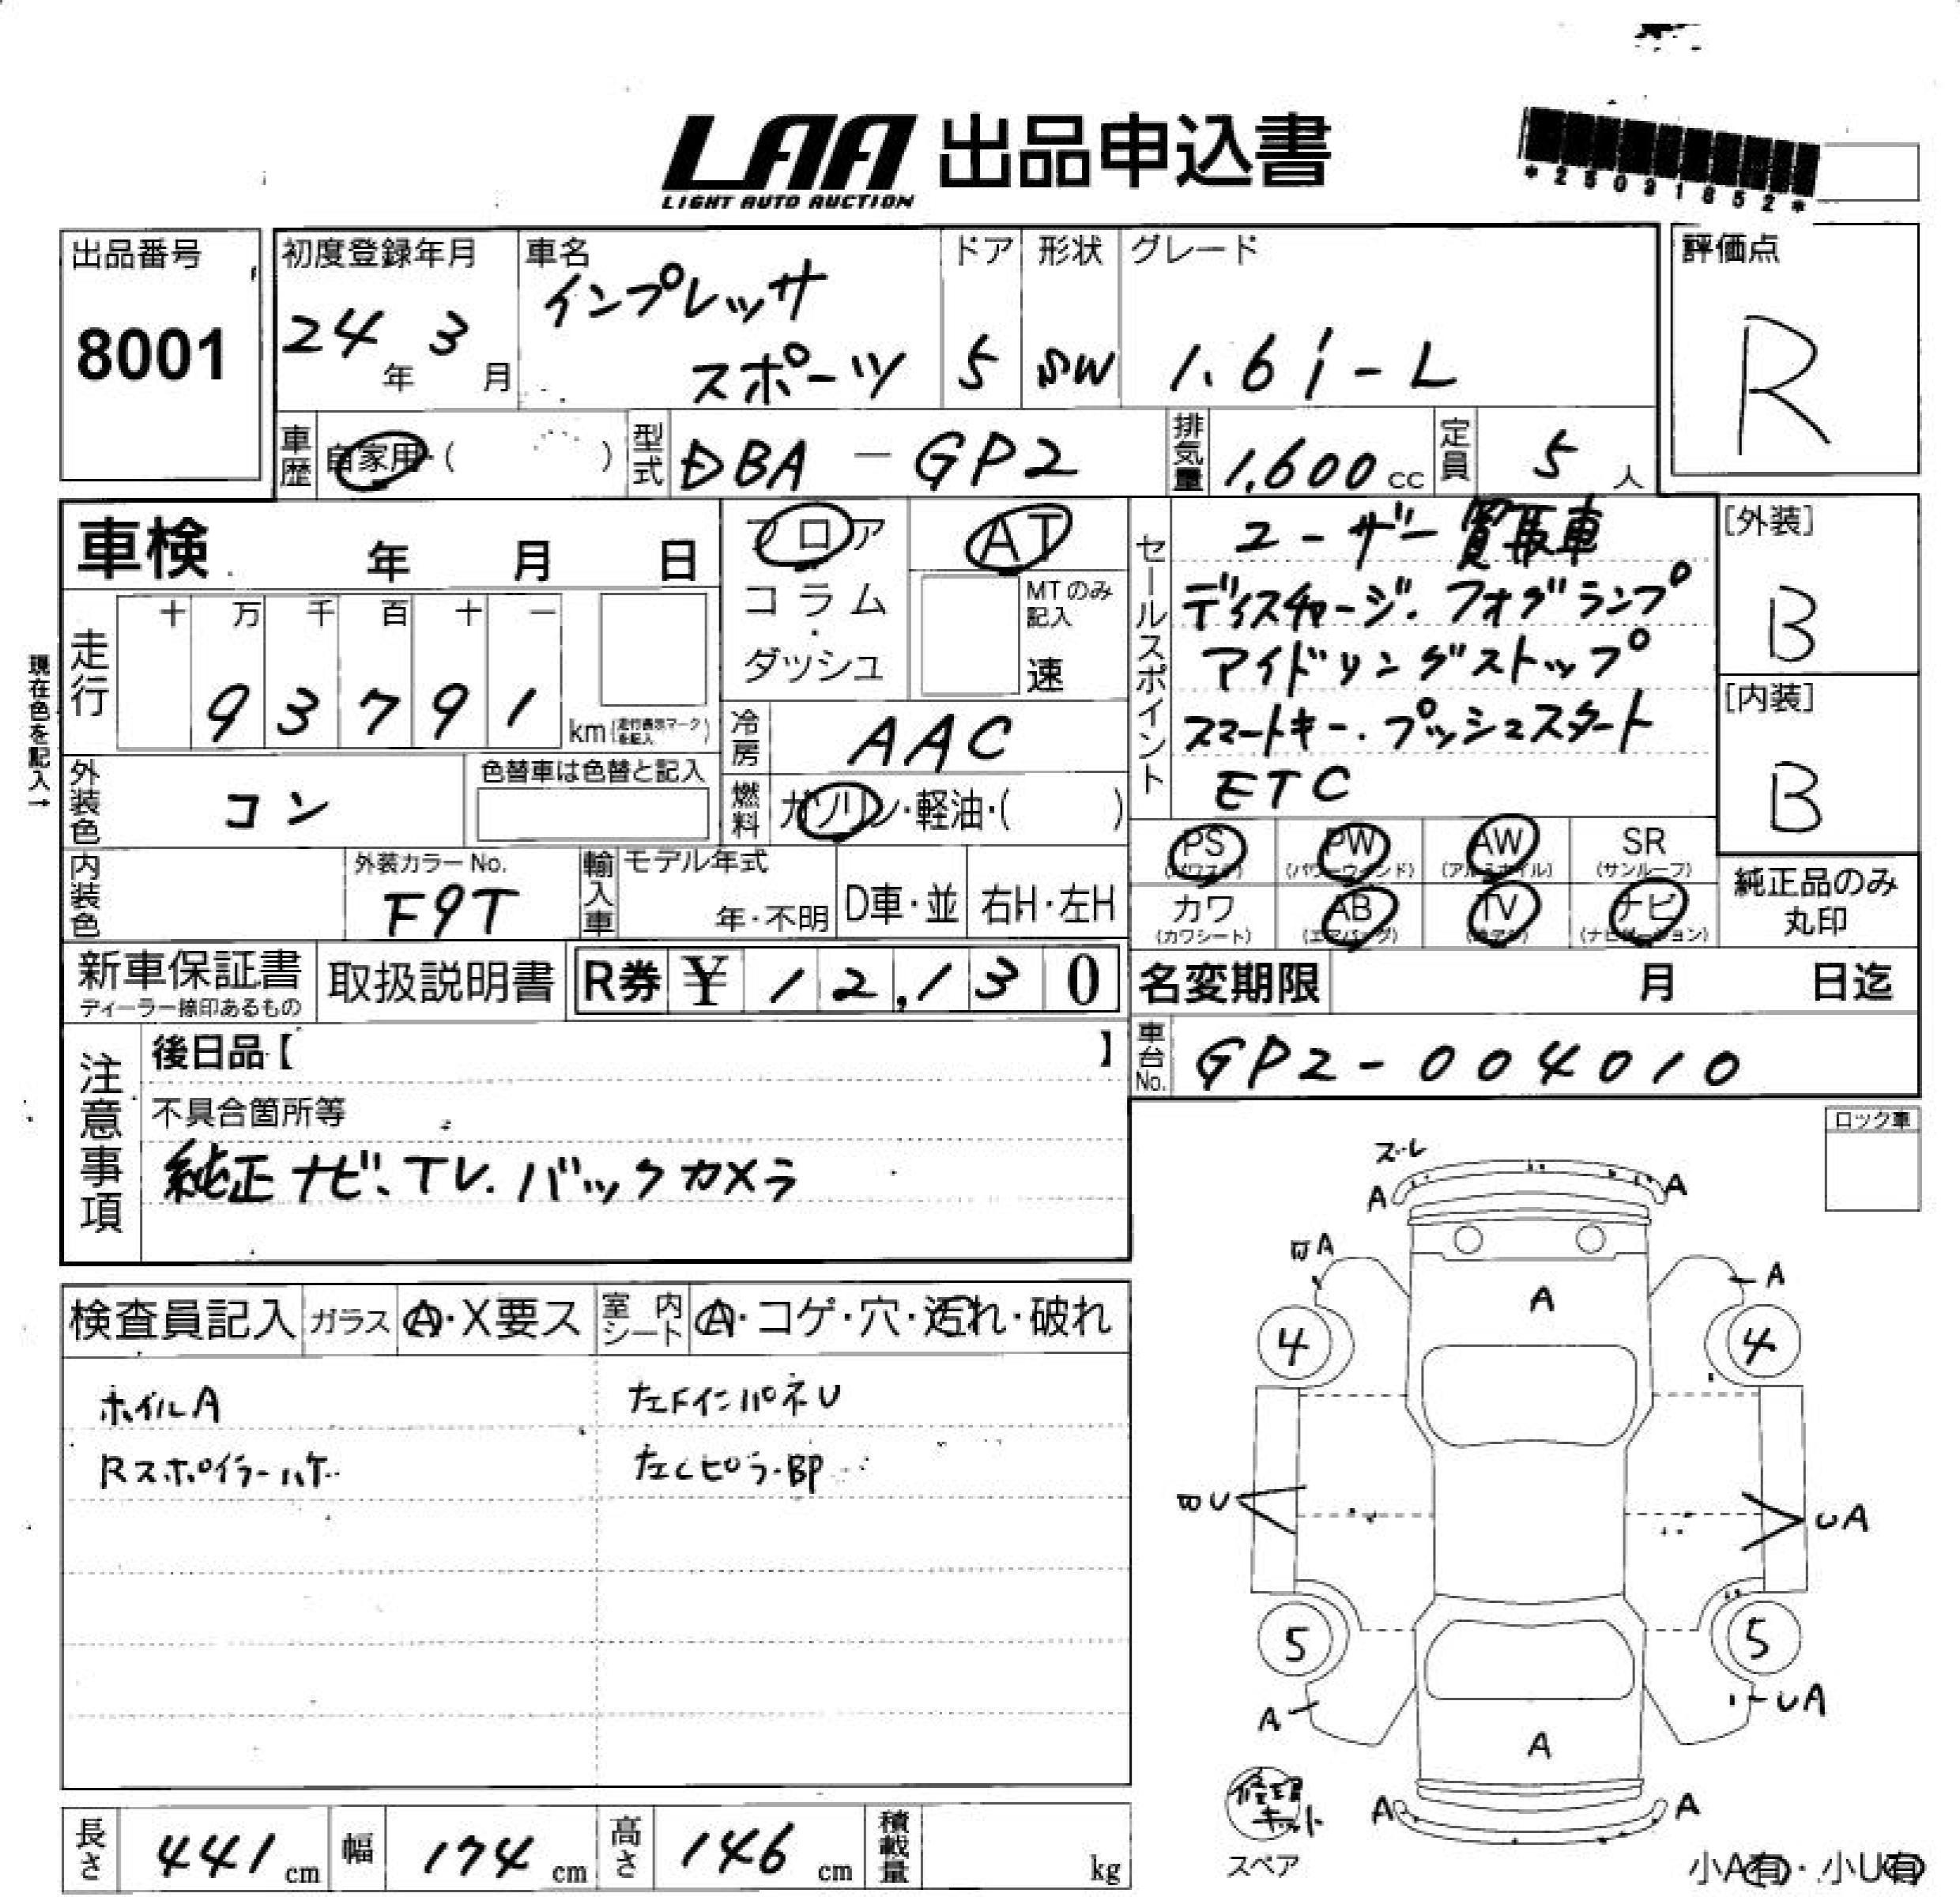 LAA 出品申込書
LIGHT AUTO AUCTION
*25031852*
出品番号
8001
初度登録年月
24年 3月
車名
インプレッサ
スポーツ
ドア
5
形状
SW
グレード
1.6i-L
評価点
R
車歴 自家用・( )
型式 DBA-GP2
排気量 1,600cc
定員 5人
車検 年 月 日
フロア
コラム
ダッシュ
AT
MTのみ
記入
速
セールスポイント
ユーザー買取車
ディスチャージ.フォグランプ
アイドリングストップ
スマートキー.プッシュスタート
ETC
[外装]
B
[内装]
B
現在色を記入→
走行
十 万 千 百 十 一
9 3 7 9 1
km(走行表示マークを記入)
冷房 AAC
燃料 ガソリン・軽油・( )
外装色 コン
色替車は色替と記入
内装色
外装カラーNo.
F9T
輸入車
モデル年式
年・不明
D車・並
右H・左H
PS
(パワステ)
PW
(パワーウィンド)
AW
(アルミホイル)
SR
(サンルーフ)
カワ
(カワシート)
AB
(エアバッグ)
TV
ナビ
(ナビゲーション)
純正品のみ
丸印
新車保証書
ディーラー捺印あるもの
取扱説明書
R券 ¥12,130
名変期限 月 日迄
車台No. GP2-004010
注意事項
後日品【 】
不具合箇所等
純正ナビ、TV.バックカメラ
ロック車
検査員記入
ガラス Ⓐ・X要ス
室内シート Ⓐ・コゲ・穴・汚れ・破れ
ホイルA
左FインパネU
Rスポイラーハゲ
左Cピラ-BP
ズレ
A
A
A
A
A
4
4
BU
UA
5
5
A
UA
A
A
A
修理
キット
スペア
小A有・小U有
長さ 441cm
幅 174cm
高さ 146cm
積載量 kg